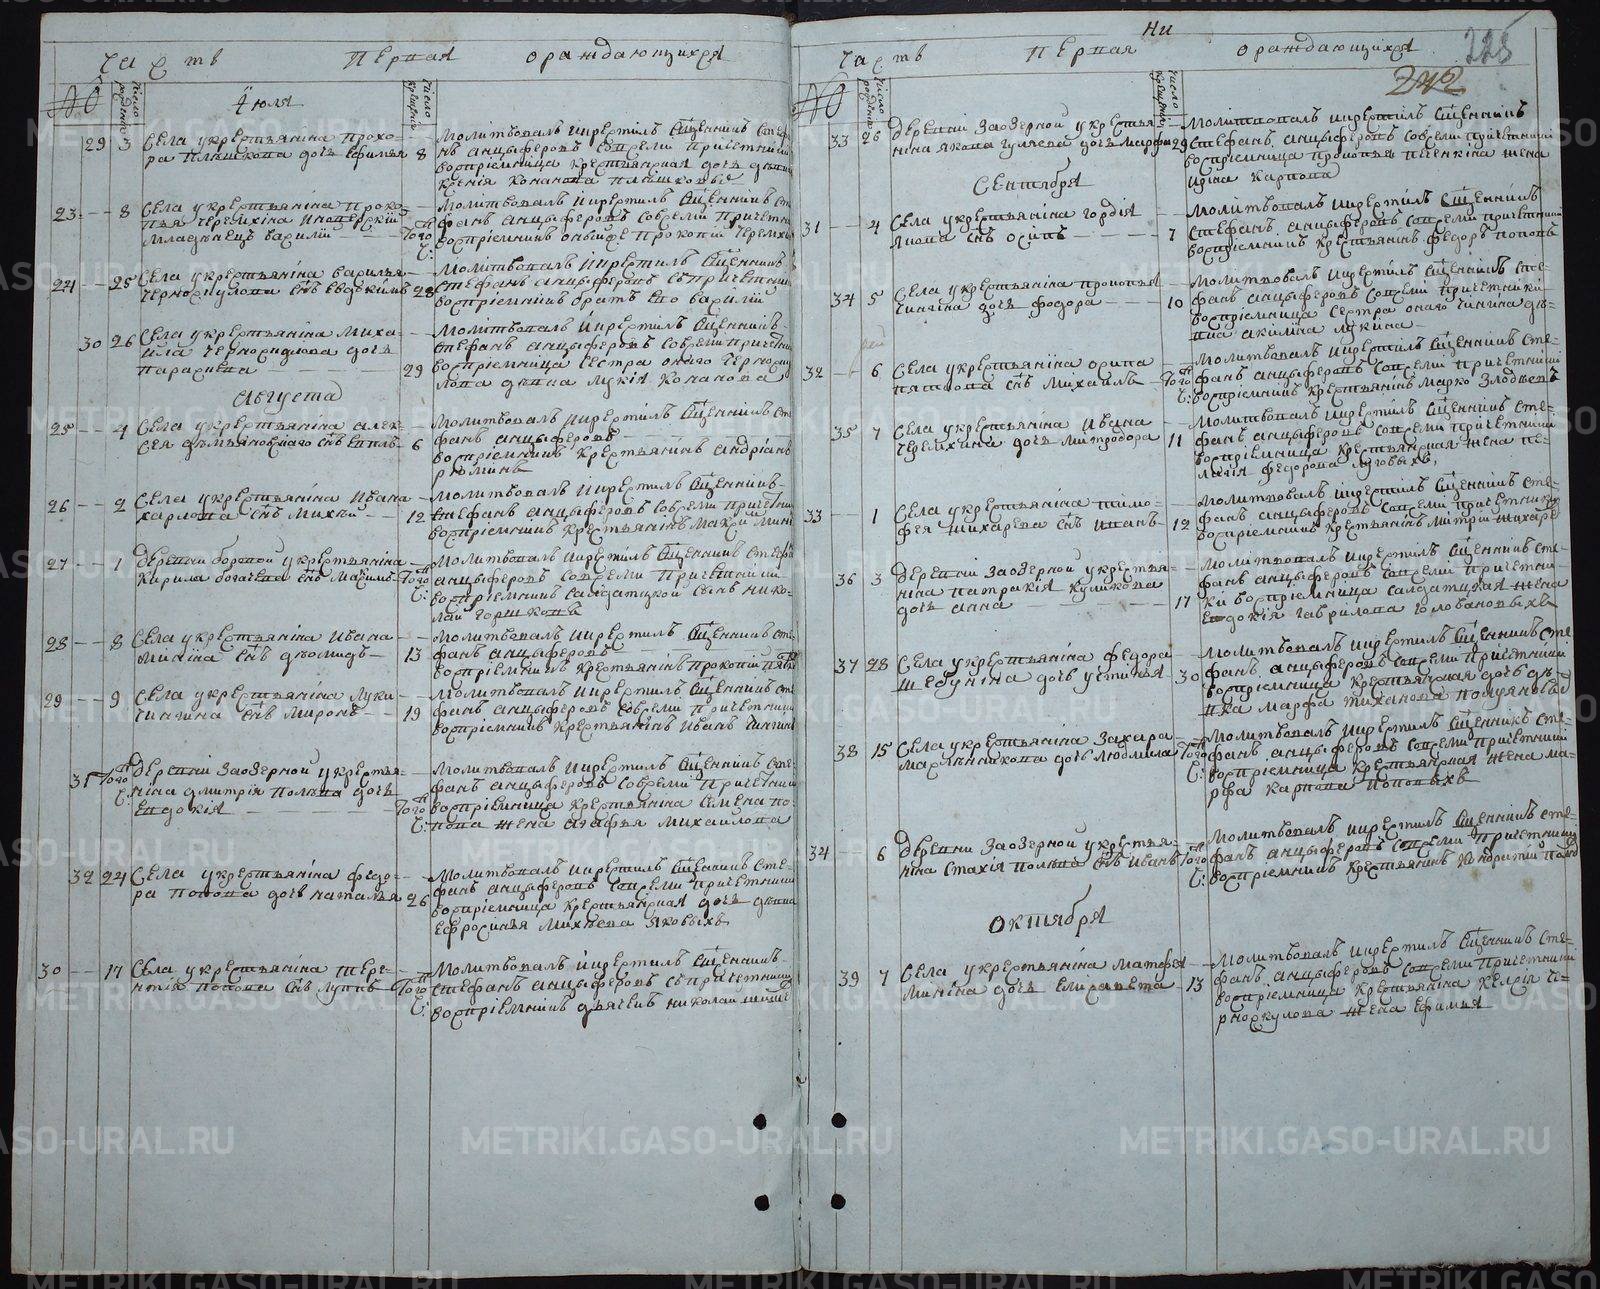 Часть первая ораждающихся
№
число рождения
Июля
число крещения
29 3 Села укрестьянина прохо-
ра Плышкова дочь Ефилья 8
Молитвовалъ икрестилъ Священникъ Сте-
нъ анцыферовъ Совсеми причетники
восприемница крестьянская дочь девица
ксения Конанова плышковыхъ
23 8 Села укрестьянина проко-
пья Черемхина
младенецъ василий Того
Молитвовалъ икрестилъ Священникъ Сте
фанъ анцыферовъ Совсеми причетни
восприемникъ прокопий Черемхи
24 25 Села укрестьянина василья
Черноскулова Снъ Евдокимъ 28
Молитвовалъ икрестилъ Священникъ
Стефанъ анцыферовъ Съпричетники
восприемникъ братъ Его василий
30 26 Села укрестьянина Миха-
ила Черноскулова дочь
параскева 29
Молитвовалъ икрестилъ Священникъ
Стефанъ анцыферовъ Совсеми причетни
восприемница Сестра онаго Черноску
лова девица лукия Конанова
Августа
25 4 Села укрестьянина алек-
сея демьяновскаго Снъ 6
Молитвовалъ икрестилъ Священникъ Сте
фанъ анцыферовъ
восприемникъ крестьянинъ андрианъ
рюминъ
26 2 Села укрестьянина Ивана
харлова Снъ Михей 12
Молитвовалъ икрестилъ Священникъ
Стефанъ анцыферовъ Совсеми причетни
восприемникъ крестьянинъ Макей Мини
27 1 деревни боровой укрестьянина
Кирила богачева Снъ Максимъ Того
Молитвовалъ икрестилъ Священникъ Стефа
анцыферовъ Совсеми причетники
восприемникъ Салдатской Сынъ нико-
лай горшковъ
28 8 Села укрестьянина Ивана
Минина Снъ диомидъ 13
Молитвовалъ икрестилъ Священникъ Сте
фанъ анцыферовъ
восприемникъ крестьянинъ прокопий
29 9 Села укрестьянина Луки
Чингина Снъ Миронъ 19
Молитвовалъ икрестилъ Священникъ Сте
фанъ анцыферовъ Совсеми причетники
восприемникъ крестьянинъ Иванъ Чингинъ
31 Того деревни Заозерной укрестья-
нина дмитрия Польва дочь
Евдокия Того
Молитвовалъ икрестилъ Священникъ Сте-
фанъ анцыферовъ Совсеми причетники
восприемница крестьянина Семена по-
пова жена агафья Михаилова
32 24 Села укрестьянина федо-
ра Попова дочь наталья 26
Молитвовалъ икрестилъ Священникъ Сте-
фанъ анцыферовъ Совсеми причетники
восприемница крестьянская дочь девица
Ефросинья Михеева Яковыхъ
30 17 Села укрестьянина тере-
нтия попова Снъ Лупъ Того
Молитвовалъ икрестилъ Священникъ
Стефанъ анцыферовъ Съпричетники
восприемникъ дьячекъ николай
ни
Часть первая ораждающихся
225
242
№
число рождения
число крещения
33 26 деревни Заозерной укрестья-
нина якова гуляева дочь Марфа 29
Молитвовалъ икрестилъ Священникъ
Стефанъ анцыферовъ Совсеми причетники
восприемница прокопья печенкина жена
ирина карпова
Сентября
31 4 Села укрестьянина гордия
Лиова Снъ осипъ 7
Молитвовалъ икрестилъ Священникъ
Стефанъ анцыферовъ Совсеми причетники
восприемникъ крестьянинъ федоръ поповъ
34 5 Села укрестьянина прокопья
Чингина дочь федора 10
Молитвовалъ икрестилъ Священникъ Сте-
фанъ анцыферовъ Совсеми причетники
восприемница Сестра онаго Чингина де-
вица акилина лукина
32 6 Села укрестьянина осипа
пяткова Снъ Михаилъ Того
Молитвовалъ икрестилъ Священникъ Сте-
фанъ анцыферовъ Совсеми причетники
восприемникъ крестьянинъ Марко
35 7 Села укрестьянина Ивана
Черемхина дочь Митродора 11
Молитвовалъ икрестилъ Священникъ Сте-
фанъ анцыферовъ Совсеми причетники
восприемница крестьянская жена пе-
лагия федорова луговыхъ
33 1 Села укрестьянина тимо-
фея жихарева Снъ Иванъ 12
Молитвовалъ икрестилъ Священникъ Сте-
фанъ анцыферовъ Совсеми причетники
восприемникъ крестьянинъ Митрий жихаре
36 3 деревни Заозерной укрестья-
нина патракия куликова
дочь анна 17
Молитвовалъ икрестилъ Священникъ Сте-
фанъ анцыферовъ Совсеми причетни-
ки восприемница Салдатцкая жена
Евдокия гаврилова головановыхъ
37 28 Села укрестьянина федора
жебунина дочь устинья 30
Молитвовалъ икрестилъ Священникъ Сте
фанъ анцыферовъ Совсеми причетники
восприемница крестьянская дочь де-
вка Марфа тиханова
38 15 Села укрестьянина Захара
Махлянникова дочь людмила Того
Молитвовалъ икрестилъ Священникъ Сте-
фанъ анцыферовъ Совсеми причетники
восприемница крестьянская жена ма-
рфа карпова поповыхъ
34 6 деревни Заозерной укрестья-
нина Стахия Польва Снъ Иванъ Того
Молитвовалъ икрестилъ Священникъ Сте-
фанъ анцыферовъ Совсеми причетники
восприемникъ крестьянинъ
Октября
39 7 Села укрестьянина матфея
Минина дочь Елисавета 13
Молитвовалъ икрестилъ Священникъ Сте-
фанъ анцыферовъ Совсеми причетники
восприемница крестьянина Келсия Че-
рноскулова жена Ефимья
METRIKI.GASO-URAL.RU